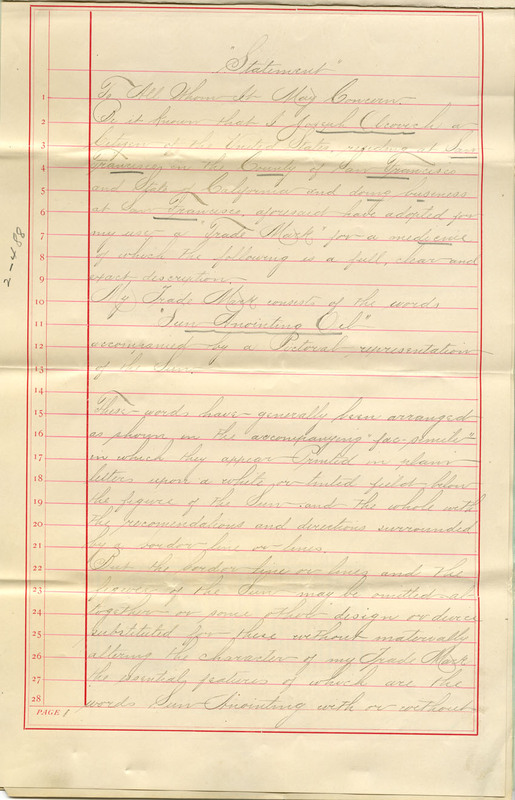 "Statement"
1 To All Whom It May Concern.
2 Be it known that I Joseph a
3 Citizen of the United States, residing at San
4 Francisco, in the County of San Francisco
5 and State of California and doing buseness
6 at San Francisco, aforesaid have adopted for
7 my use a "Trade Mark" for a medicine
8 of which the following is a full, clear and
9 exact description.
10 My Trade Mark consists of the words
11 "Sun Anointing Oil"
12 accompanied by a Pictoral representation
13 of the Sun.
14
15 These words have generally been arranged
16 as shown in the accompanying "fac-simile"
17 in which they appear Printed in plain
18 letters upon a white or tinted field below
19 the figure of the Sun and the whole with
20 the recomendations and directions surrounded
21 by a border line or lines.
22 But the border line or lines and the
23 figure of the Sun may be omitted al-
24 together or some other design or device
25 substituted for these without materially
26 altering the character of my Trade Mark
27 the essential features of which are the
28 words Sun Anointing with or without
PAGE 1
2-488